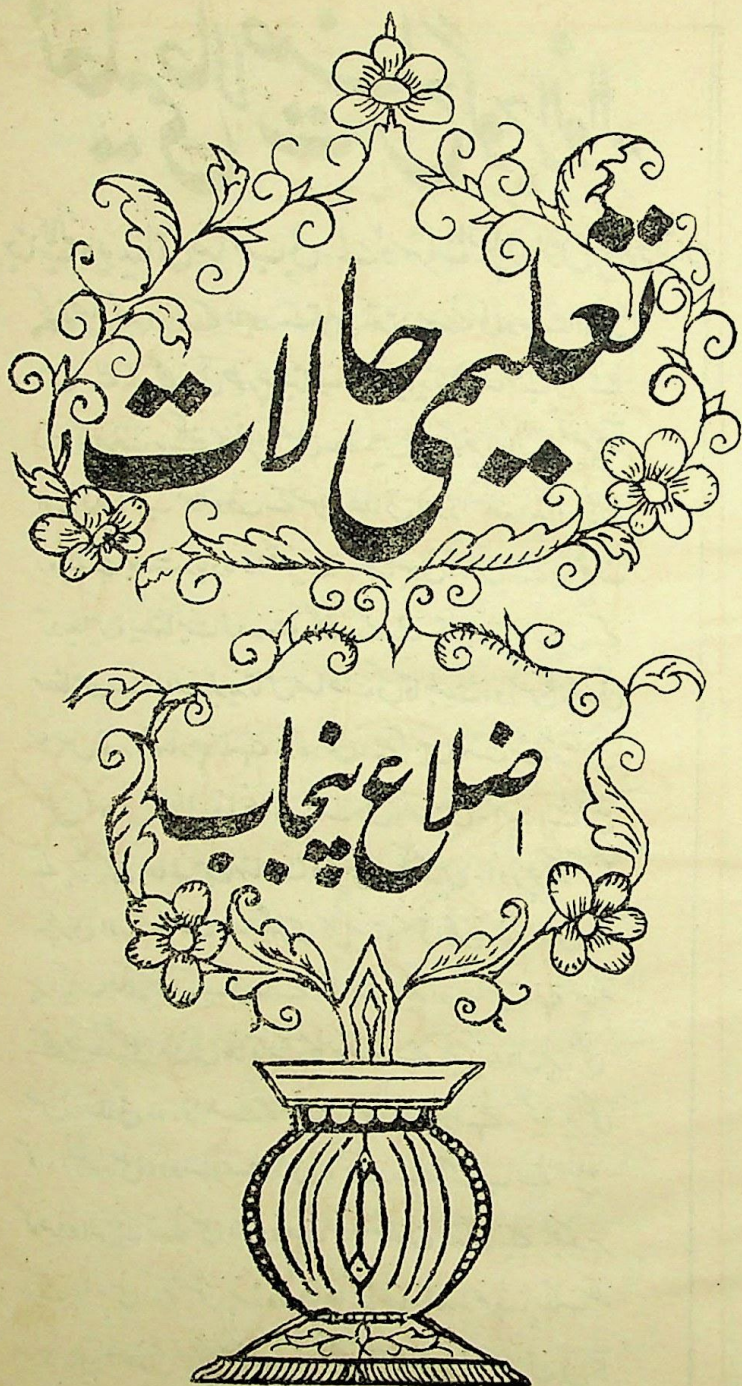 تعلیمی حالات
اضلاع پنجاب